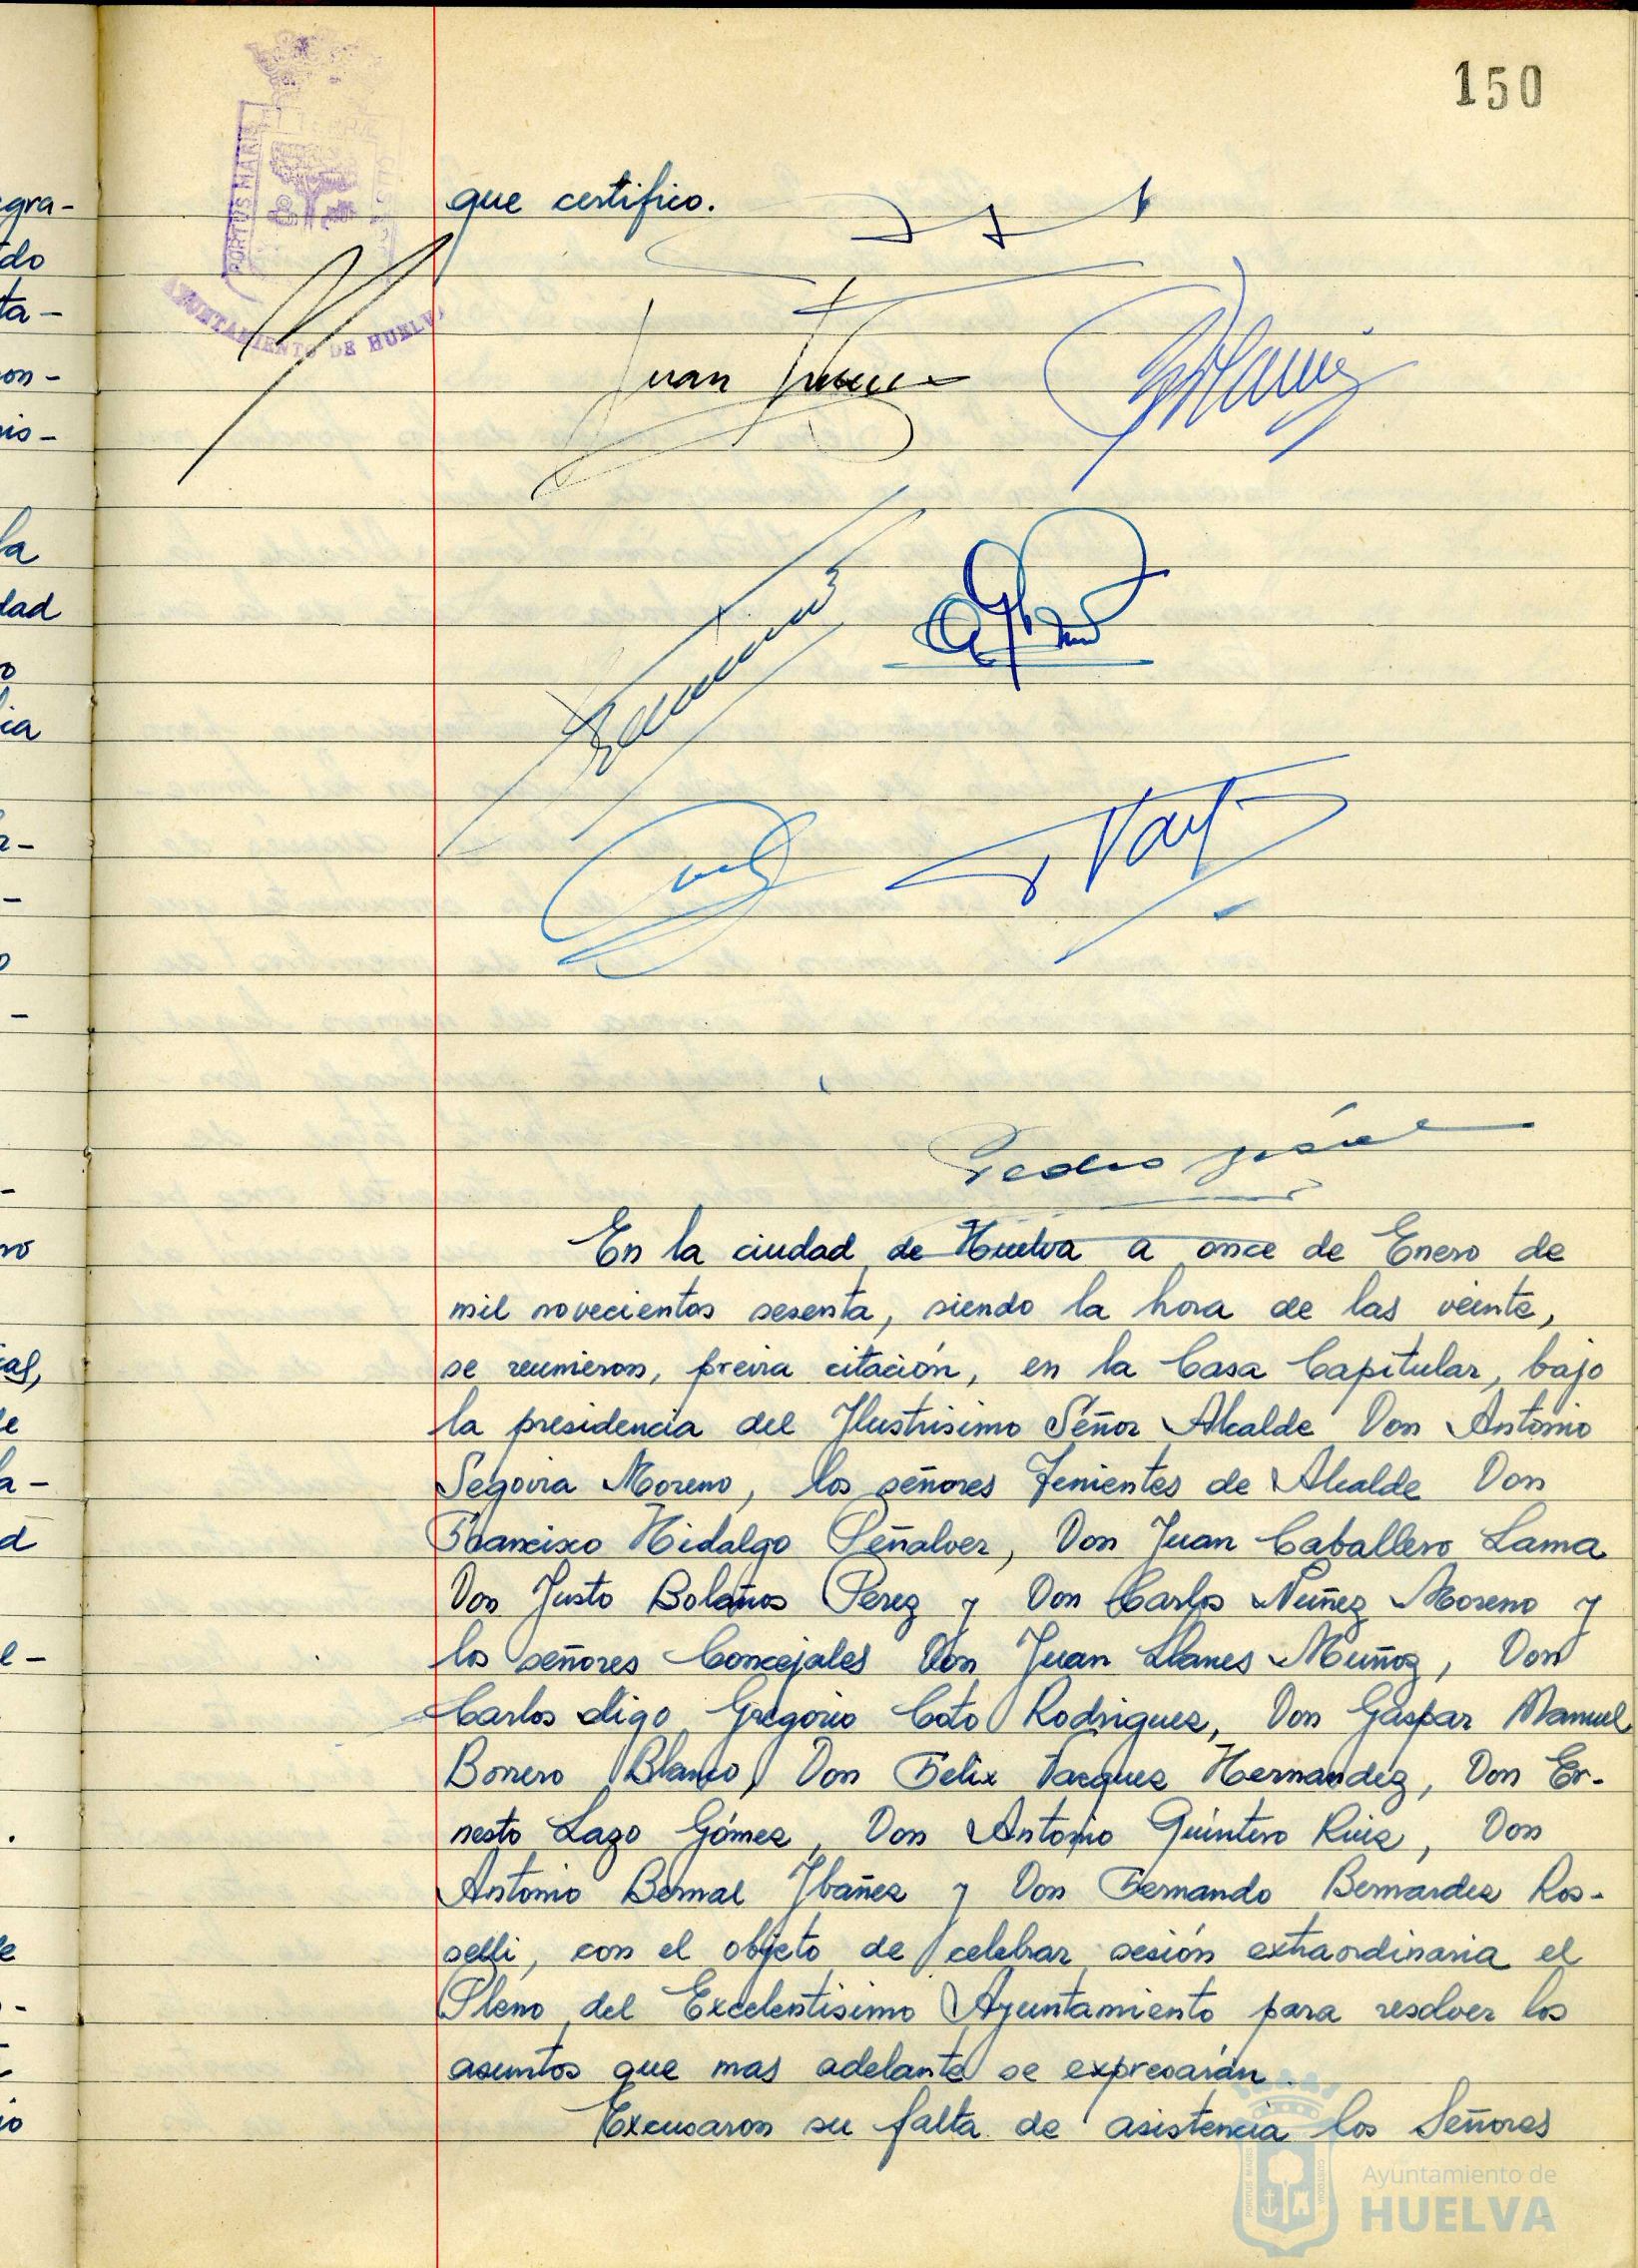 150
PORTUS MARIS ET TERRAE CUSTODIA
AYUNTAMIENTO DE HUELVA
que certifico.
Juan
Pedro
En la ciudad de Huelva a once de Enero de
mil novecientos sesenta, siendo la hora de las veinte,
se reunieron, previa citación, en la Casa Capitular, bajo
la presidencia del Ilustrisimo Señor Alcalde Don Antonio
Segovia Moreno, los señores Tenientes de Alcalde Don
Francisco Hidalgo Peñalver, Don Juan Caballero Lama
Don Justo Bolaños Perez y Don Carlos Nuñez Moreno y
los señores Concejales Don Juan Llanes Muñoz, Don
Carlos digo Gregorio Coto Rodriguez, Don Gaspar Manuel
Borrero Blanco, Don Felix Vazquez Hernandez, Don Er-
nesto Lazo Gómez, Don Antonio Quintero Ruiz, Don
Antonio Bernal Ibañez y Don Fernando Bernardez Ros-
selli, con el objeto de celebrar sesión extraordinaria el
Pleno del Excelentisimo Ayuntamiento para resolver los
asuntos que mas adelante se expresarán.
Excusaron su falta de asistencia los Señores
Ayuntamiento de
HUELVA